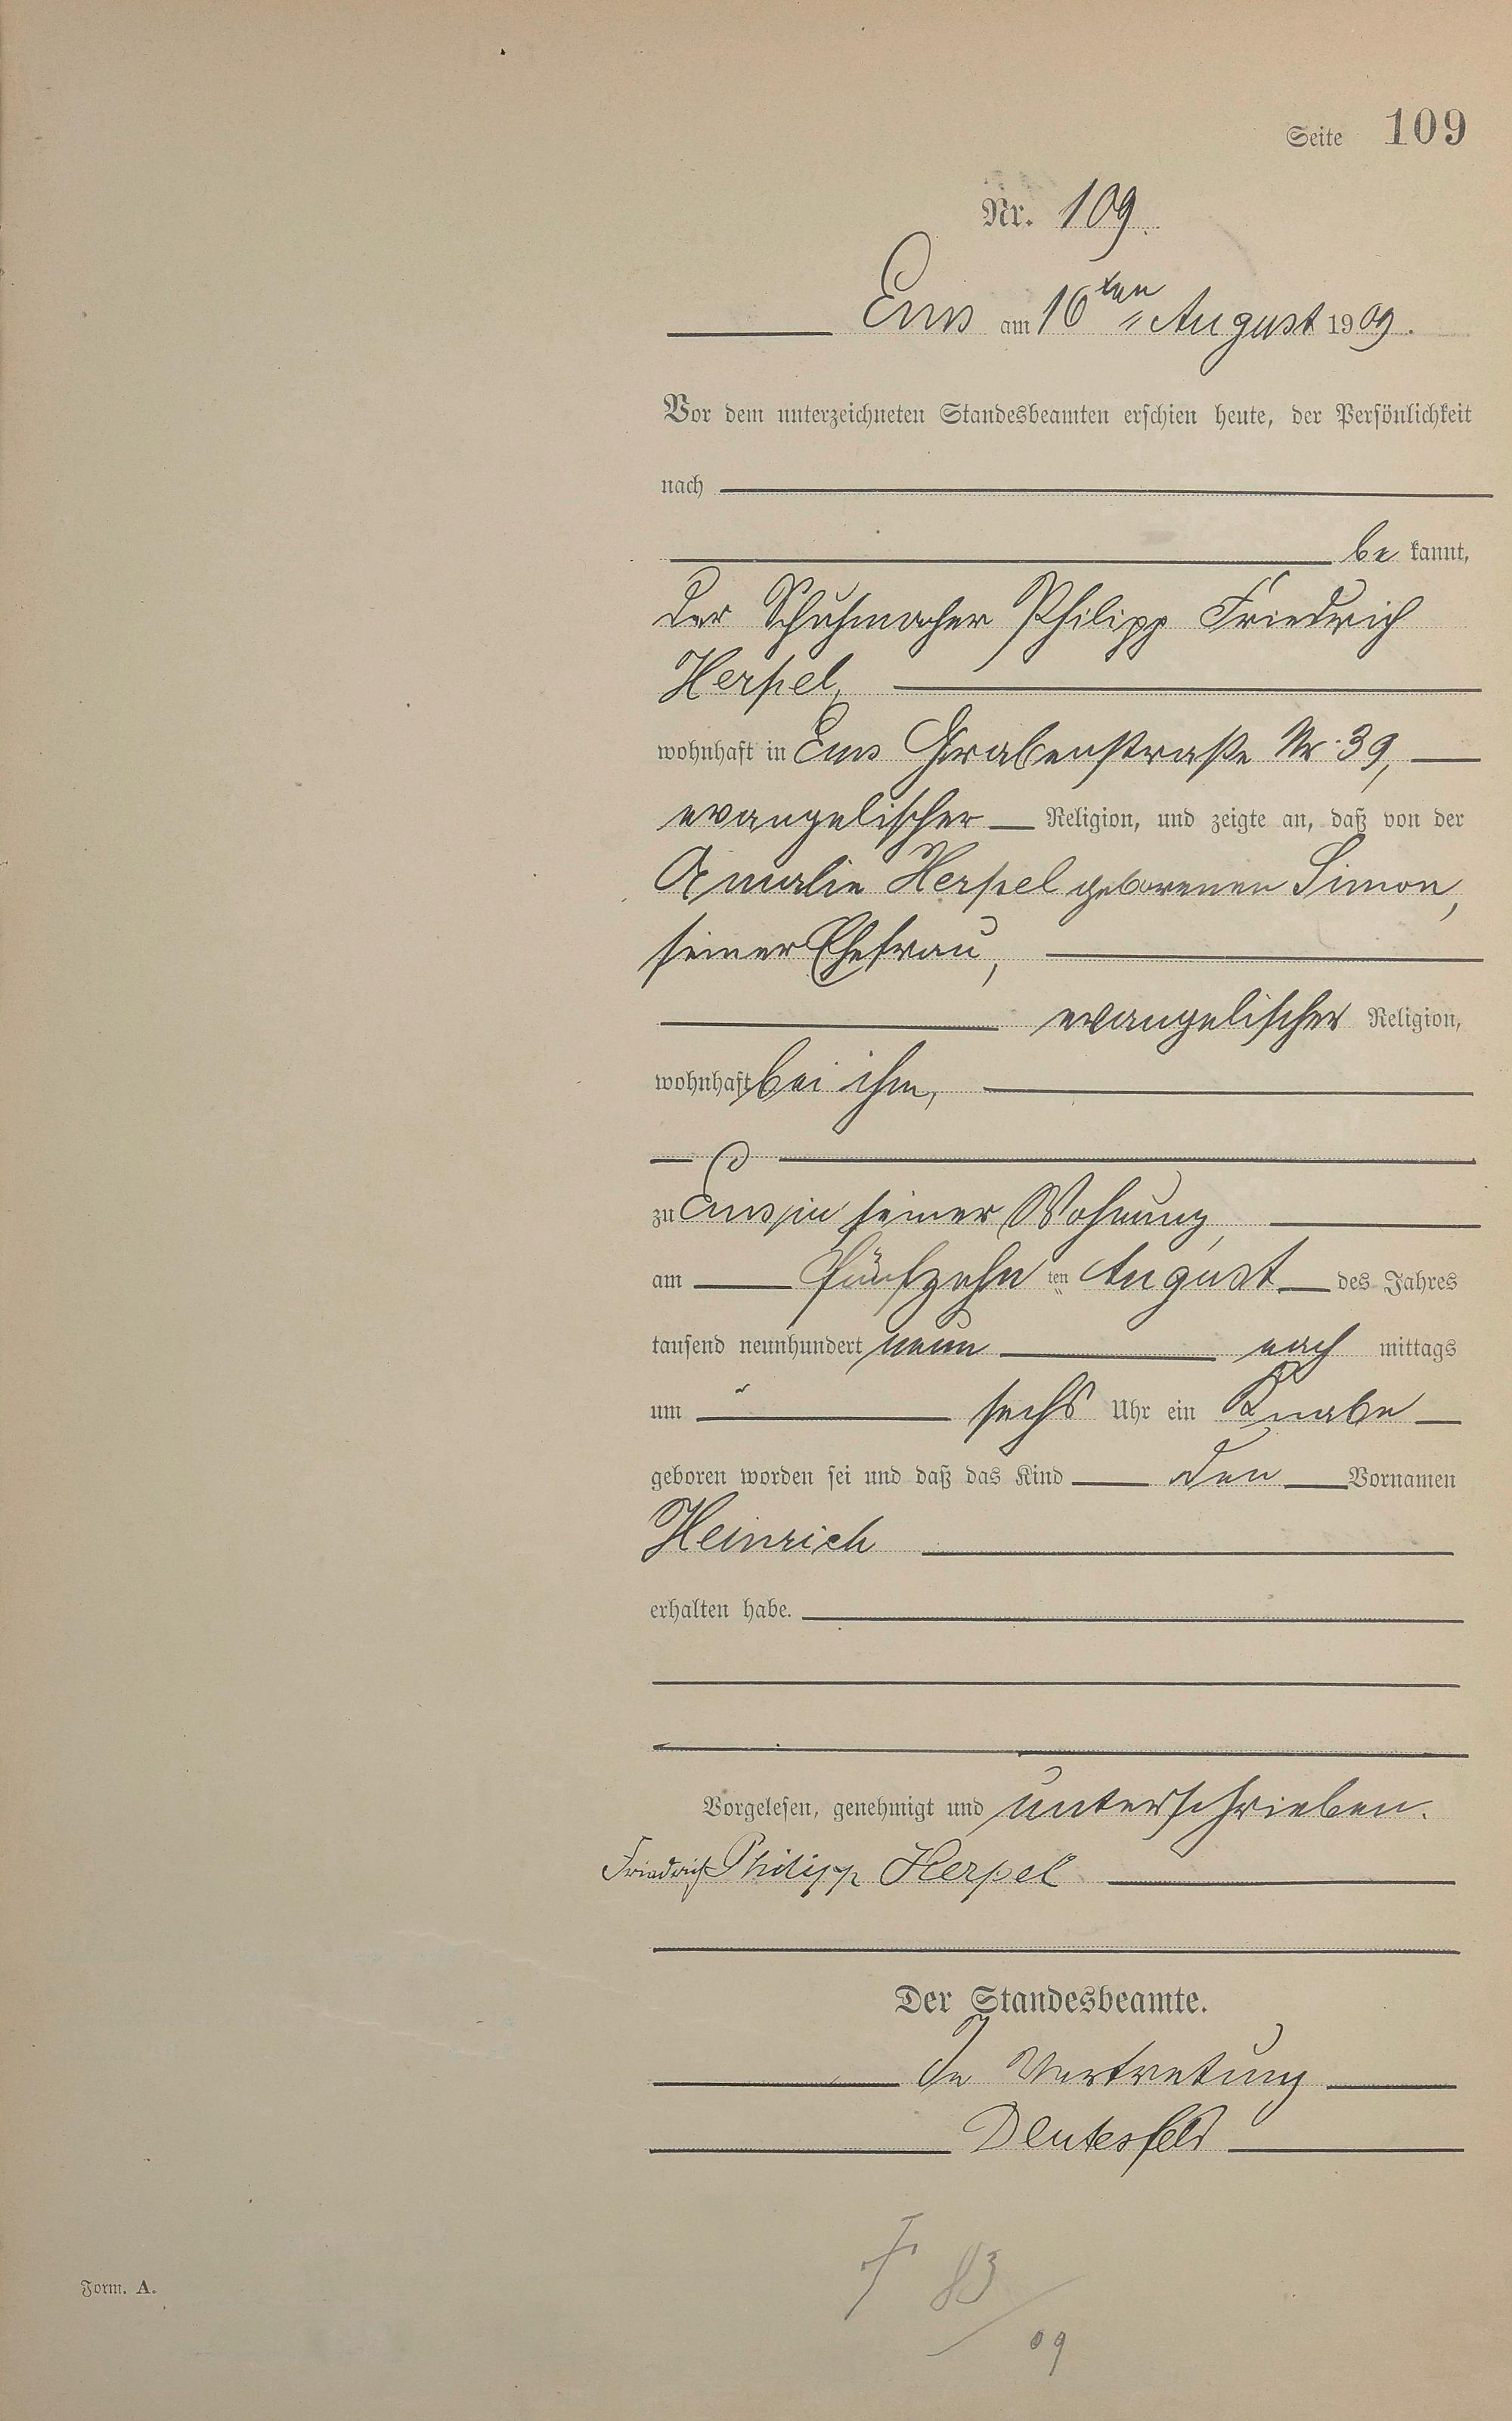 Seite 109
Nr. 109.
Ems am 16ten August 1909.
Vor dem unterzeichneten Standesbeamten erschien heute, der Persönlichkeit
nach
be kannt,
der Schuhmacher Philipp Friedrich
Herpel,
wohnhaft in Ems Grabenstraße Nr. 39,
evangelischer Religion, und zeigte an, daß von der
Amalie Herpel geborenen Simon,
seiner Ehefrau,
evangelischer Religion,
wohnhaft bei ihm,
zu Ems, in seiner Wohnung,
am fünfzehn ten August des Jahres
tausend neunhundert neun nach mittags
um sechs Uhr ein Knabe
geboren worden sei und daß das Kind den Vornamen
Heinrich
erhalten habe.
Vorgelesen, genehmigt und unterschrieben.
Friedrich Philipp Herpel
Der Standesbeamte.
In Vertretung
Deutesfeld
F 83/09
Form. A.